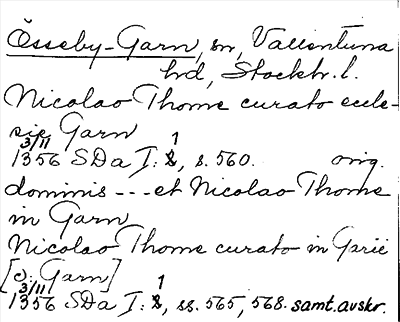 Össeby-Garn, sn, Vallentuna
hd, Stockh. l.
Nicolao Thome curato eccle-
sie Garn
3/11 1
1356 SDa I: 2, s. 560. orig.
dominis --- et Nicolao Thome
in Garn
Nicolao Thome curato in Gprie
[ɔ: Garn]
3/11 1
1356 SDa I: 2, ss. 565, 568. samt. avskr.